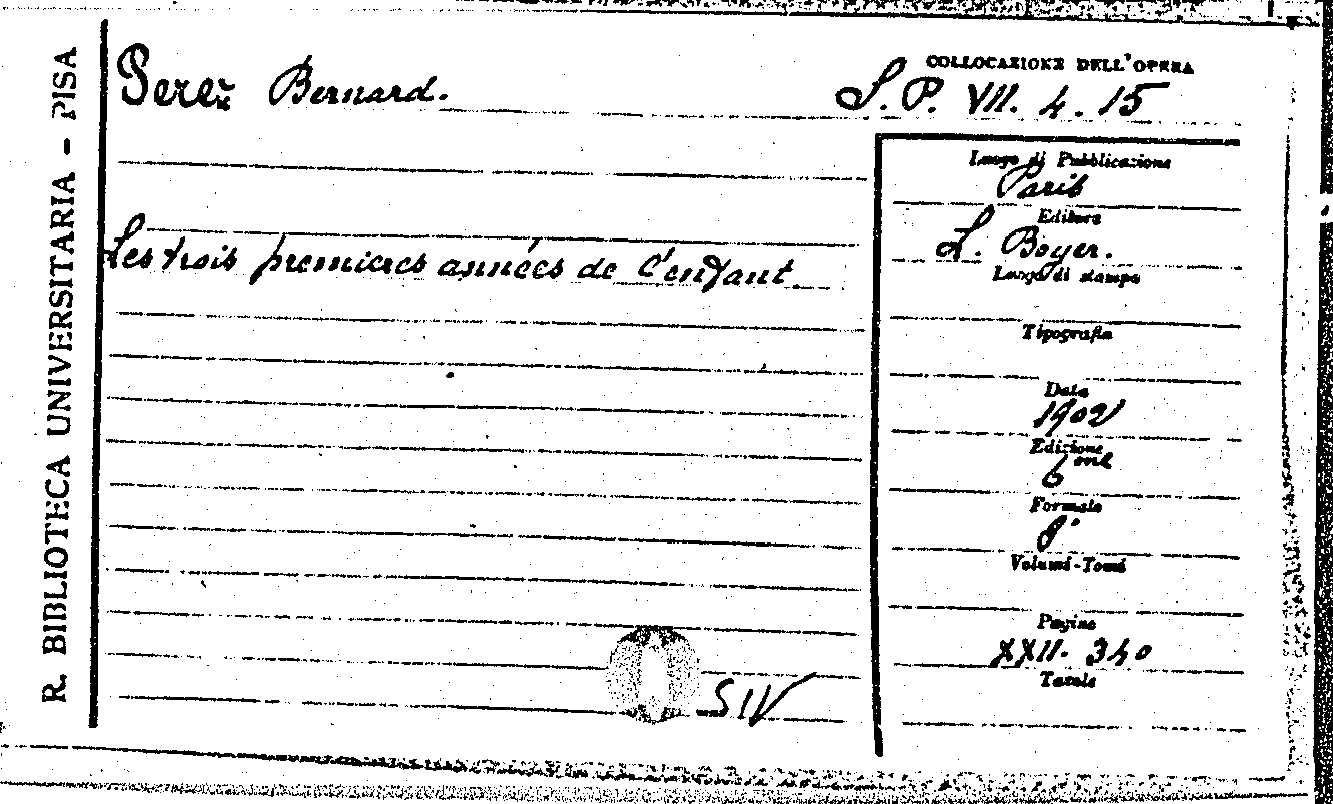 R. BIBLIOTECA UNIVERSITARIA - PISA
Perez Bernard.
COLLOCAZIONE DELL'OPERA
S. P. VII. 4. 15
Les trois premieres années de l'enfant
Luogo di Pubblicazione
Paris
Editore
L. Boyer.
Luogo di stampa
Tipografia
Data
1902
Edizione
6 me
Formato
8°
Volumi-Tomi
Pagine
XXII. 340
Tavole
SIV